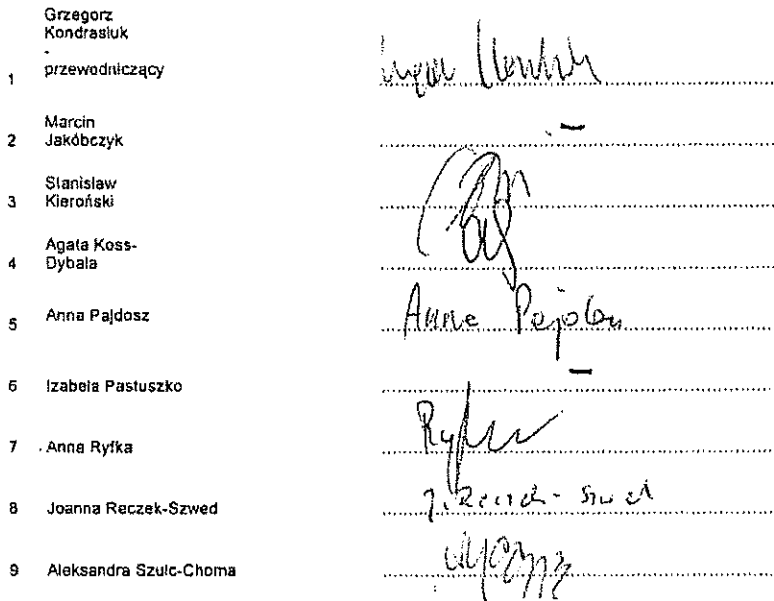 Grzegorz
Kondrasiuk
-
1 przewodniczący
Marcin
2 Jakóbczyk
–
Stanisław
3 Kieroński
Agata Koss-
4 Dybała
5 Anna Pajdosz
Anna
6 Izabela Pastuszko
–
7 Anna Ryfka
8 Joanna Reczek-Szwed
J. Reczek-Szwed
9 Aleksandra Szulc-Choma